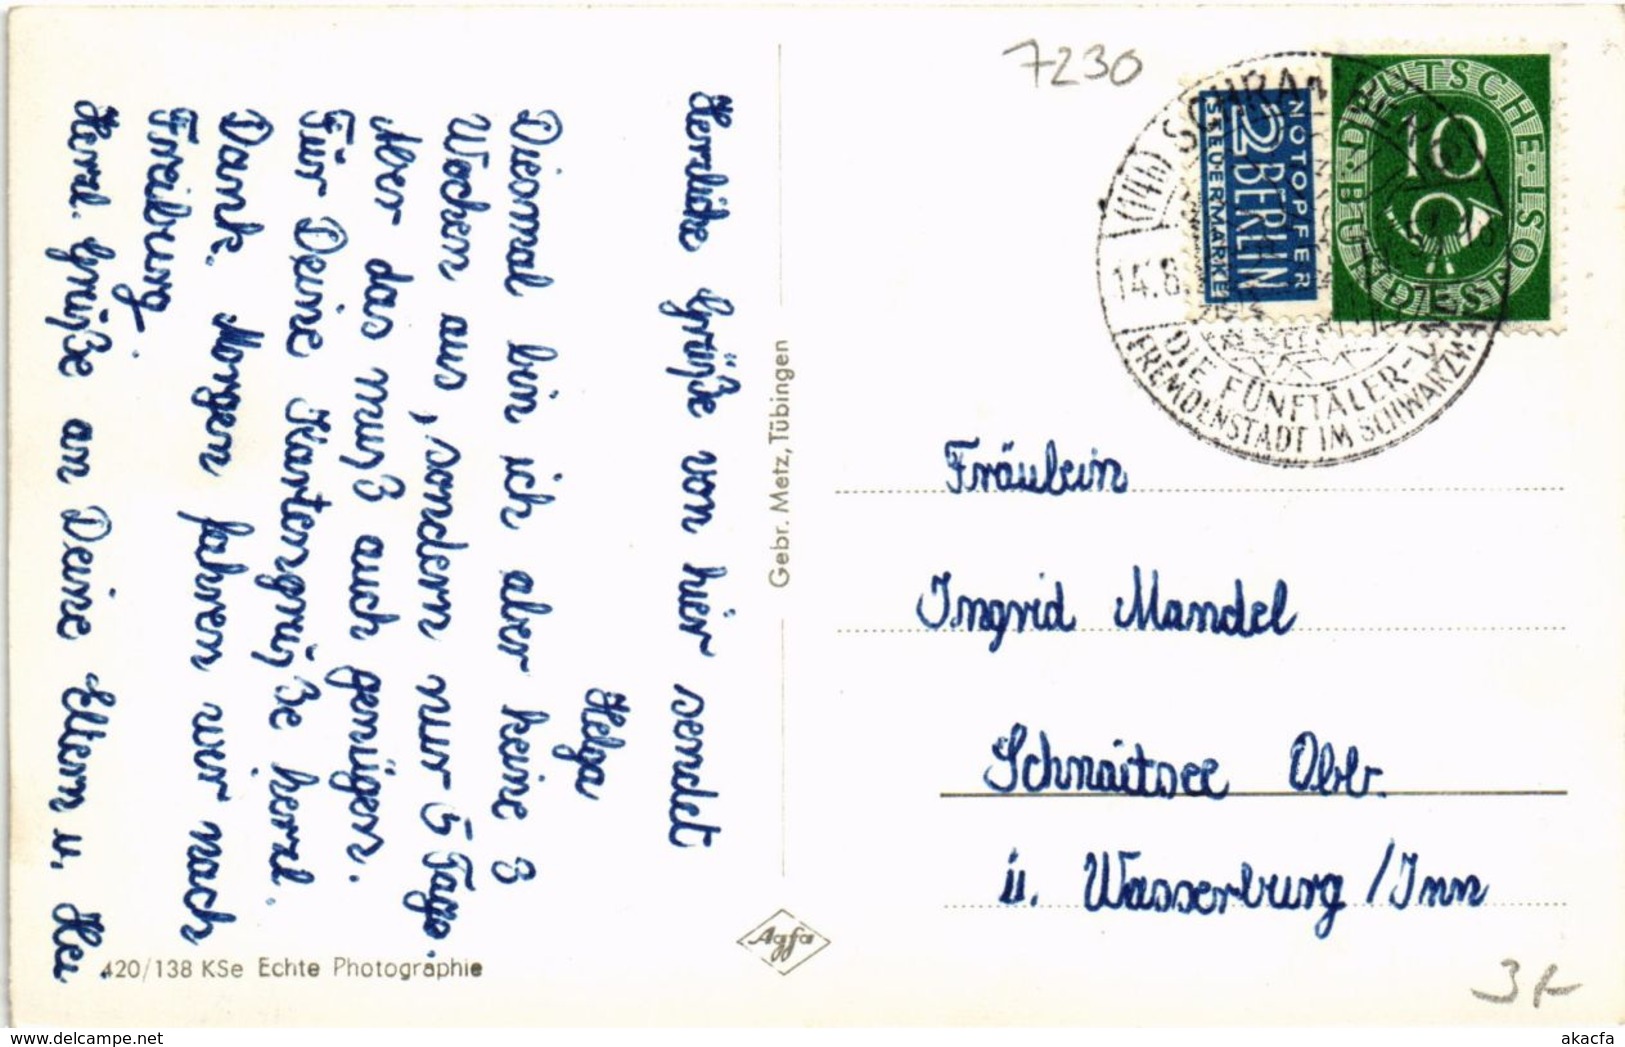 Herzliche Grüße von hier sendet
Helga
Diesmal bin ich aber keine 3
Wochen aus, sondern nur 5 Tage.
Aber das muß auch genügen.
Für Deine Kartengrüße herzl.
Dank. Morgen fahren wir nach
Freiburg.
Herzl. Grüße an Deine Eltern u. Hei
420/138 KSe Echte Photographie
Gebr. Metz, Tübingen
Agfa
7230
NOTOPFER
2 BERLIN
STEUERMARKE
DEUTSCHE BUNDESPOST
10
(14b) SCHRAMBERG
14.8.
DIE FÜNFTÄLER-
FREMDENSTADT IM SCHWARZW
Fräulein
Ingrid Mandel
Schnaitsee Obb.
ü. Wasserburg/Inn
akacfa